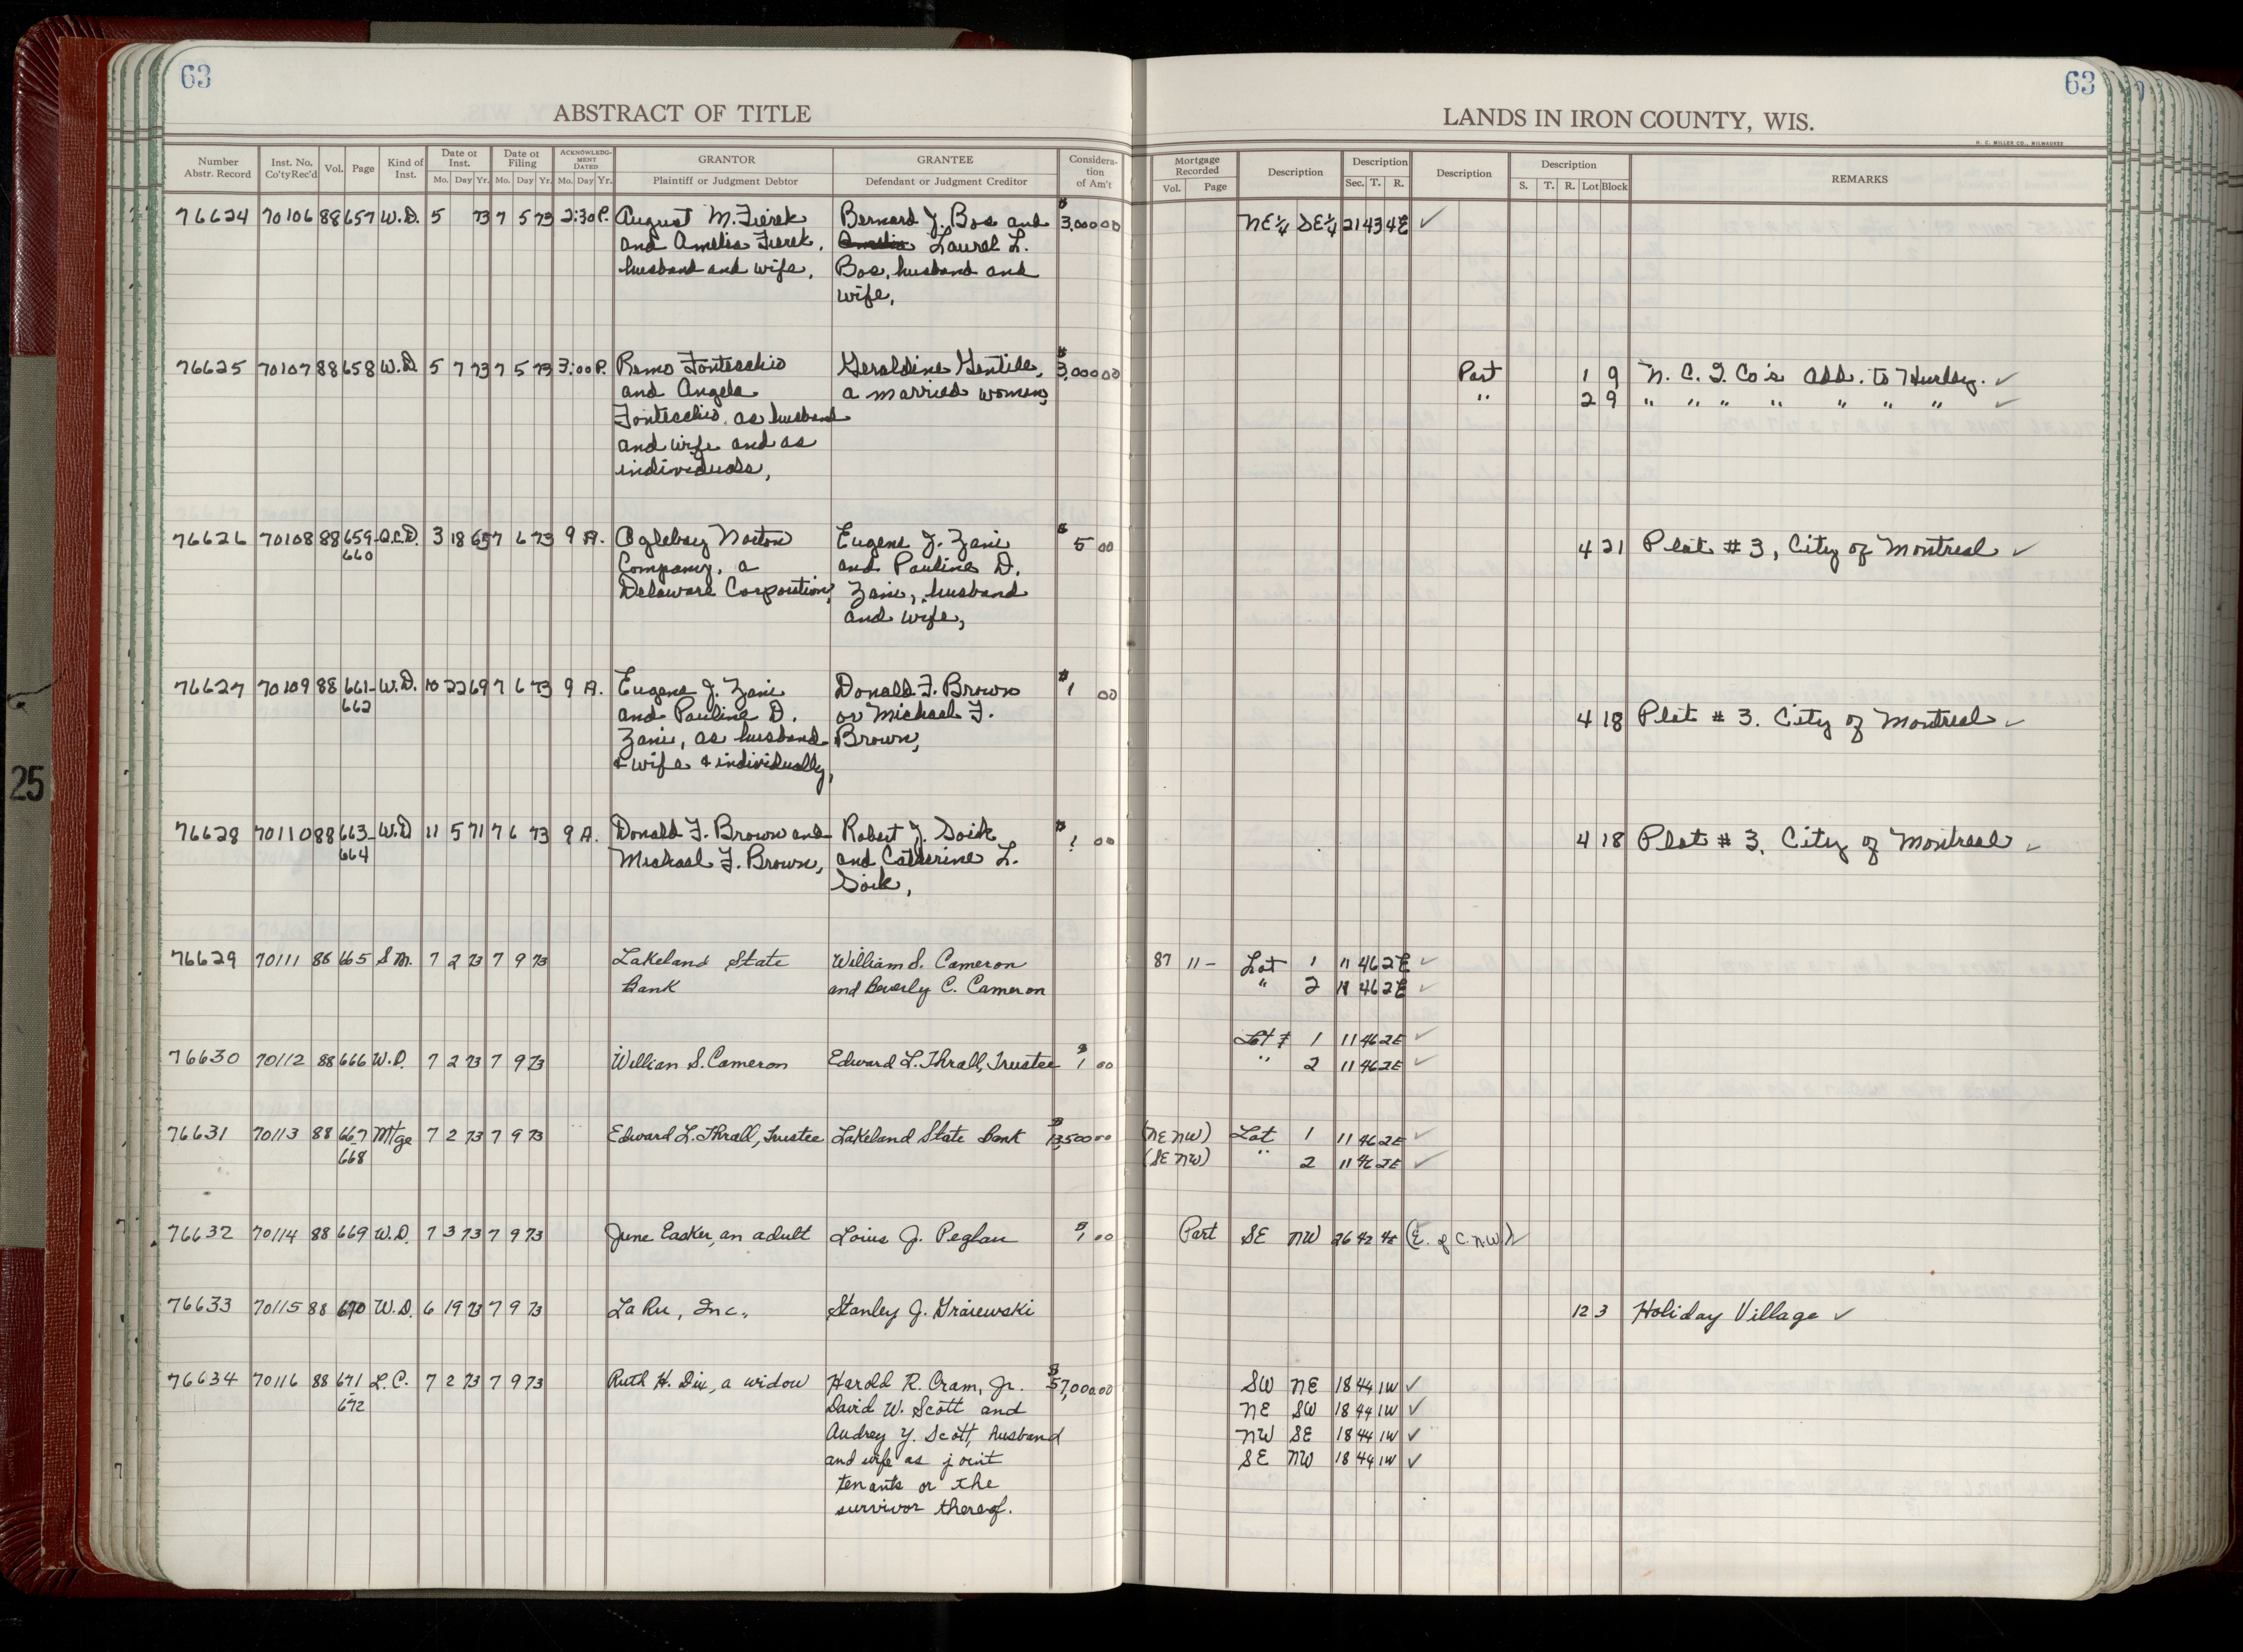 63
63
ABSTRACT OF TITLE
LANDS IN IRON COUNTY, WIS.
H. C. MILLER CO., MILWAUKEE
Number Abstr. Record | Inst. No. Co'ty Rec'd | Vol. | Page | Kind of Inst. | Date of Inst. Mo. Day Yr. | Date of Filing Mo. Day Yr. | ACKNOWLEDGMENT DATED Mo. Day Yr. | GRANTOR Plaintiff or Judgment Debtor | GRANTEE Defendant or Judgment Creditor | Consideration of Am't | Mortgage Recorded Vol. Page | Description | Description Sec. T. R. | Description | Description S. T. R. Lot Block | REMARKS
76624 70106 88 657 W.D. 5 73 7 5 73 2:30 P. August M. Fierek Bernard J. Bos and $3,000 00 NE¼ SE¼ 21 43 4E ✓
and Amelia Fierek, Laurel L.
husband and wife, Bos, husband and
wife,
76625 70107 88 658 W.D 5 7 73 7 5 73 3:00 P. Remo Fontecchio Geraldine Gentile, $3,000 00 Part 1 9 N. C. I. Co's Add. to Hurley. ✓
and Angela a married woman, " 2 9 " " " " " " " ✓
Fontecchio, as husband
and wife and as
individuals,
76626 70108 88 659- Q.C.D. 3 18 65 7 6 73 9 A. Oglebay Norton Eugene J. Zani $5 00 4 21 Plat # 3, City of Montreal ✓
660 Company, a and Pauline D.
Delaware Corporation, Zani, husband
and wife,
76627 70109 88 661- W.D. 10 22 69 7 6 73 9 A. Eugene J. Zani Donald F. Brown $1 00
662 and Pauline D. or Michael F. 4 18 Plat # 3. City of Montreal ✓
Zani, as husband Brown,
& wife & individually,
76628 70110 88 663- W.D 11 5 71 7 6 73 9 A. Donald F. Brown and Robert J. Soik $1 00 4 18 Plat # 3. City of Montreal ✓
664 Michael F. Brown, and Catherine L.
Soik,
76629 70111 88 665 S M. 7 2 73 7 9 73 Lakeland State William S. Cameron 87 11 - Lot 1 11 46 2E ✓
Bank and Beverly C. Cameron " 2 11 46 2E ✓
Lot 1 11 46 2E ✓
76630 70112 88 666 W.D. 7 2 73 7 9 73 Willian S. Cameron Edward L. Thrall, Trustee $1 00 " 2 11 46 2E ✓
76631 70113 88 667 Mtge 7 2 73 7 9 73 Edward L. Thrall, Trustee Lakeland State Bank $13,500 00 (NE NW) Lot 1 11 46 2E ✓
668 (SE NW) " 2 11 46 2E ✓
76632 70114 88 669 W.D. 7 3 73 7 9 73 June Easker, an adult Loius J. Peglau $1 00 Part SE NW 26 42 4E (E. of C.N.W) ✓
76633 70115 88 670 W.D. 6 19 73 7 9 73 La Ru, Inc., Stanley J. Graiewski 12 3 Holiday Village ✓
76634 70116 88 671 L.C. 7 2 73 7 9 73 Ruth H. Dix, a widow Harold R. Cram, Jr. $57,000.00 SW NE 18 44 1W ✓
- 672 David W. Scott and NE SW 18 44 1W ✓
Audrey Y. Scott, husband NW SE 18 44 1W ✓
and wife as joint SE NW 18 44 1W ✓
tenants or the
survivor thereof.
25